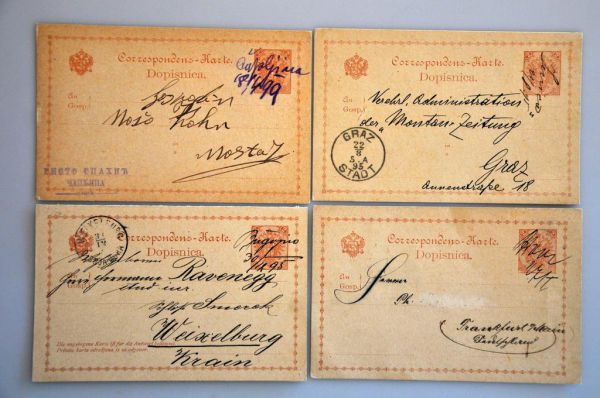 Correspondens-Karte.
Dopisnica.
An
Gosp.
Čapljina
8/4 99
Gospodin
Mošo Kohn
Mostar
РИСТО СПАХИЋ
ЧАПЉИНА
Correspondens-Karte.
Dopisnica.
An
Gosp.
Wohl. Administration
der "Montan-Zeitung
Graz
Annenstraße 18
GRAZ
22
8
5.A
95
STADT
Correspondens-Karte.
Dopisnica.
An
Gosp.
Bugojno
Herrn Hermann Ravenegg
stud. jur.
Schloß
Weixelburg
Krain
Die angebogene Karte ist für die Antwort bestimmt.
Pridata karta određena je za odgovor.
Correspondens-Karte.
Dopisnica.
An
Gosp.
Herrn
Ph.
Frankfurt a/Main